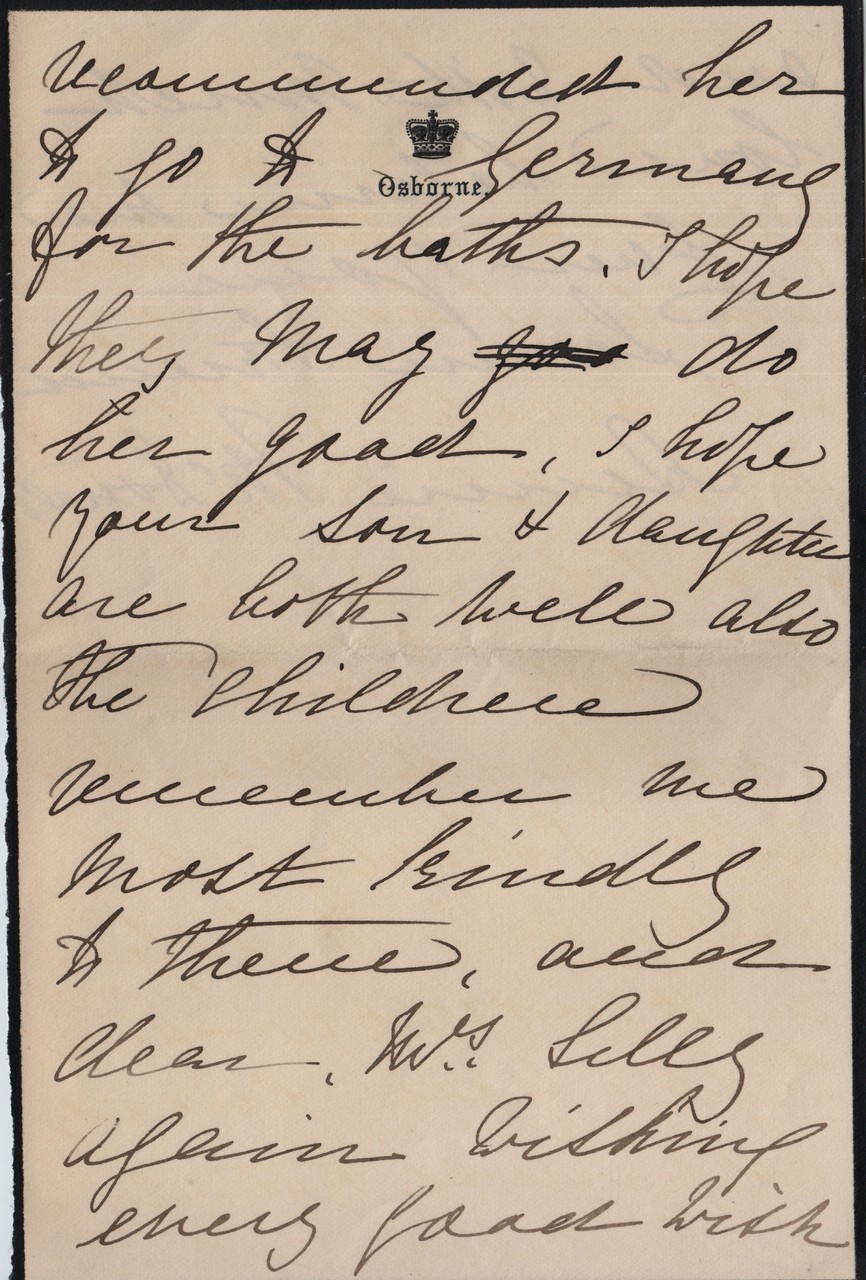 recommended her
to go to Germany
Osborne.
for the baths. I hope
they may do
her good, I hope
your son & daughter
are both well also
the children
remember me
most kindly
to them, and
dear, Mrs.
again wishing
every good wish